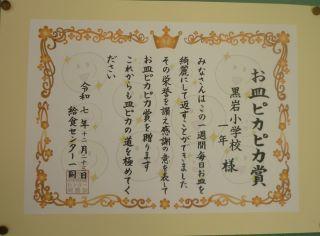 お皿ピカピカ賞
黒岩小学校
一年 様
みなさんはこの一週間毎日お皿を
綺麗にして返すことができました
その栄誉を讃え感謝の意を表して
お皿ピカピカ賞を贈ります
これからも皿ピカの道を極めてく
ださい
令和七年十二月
給食センター一同